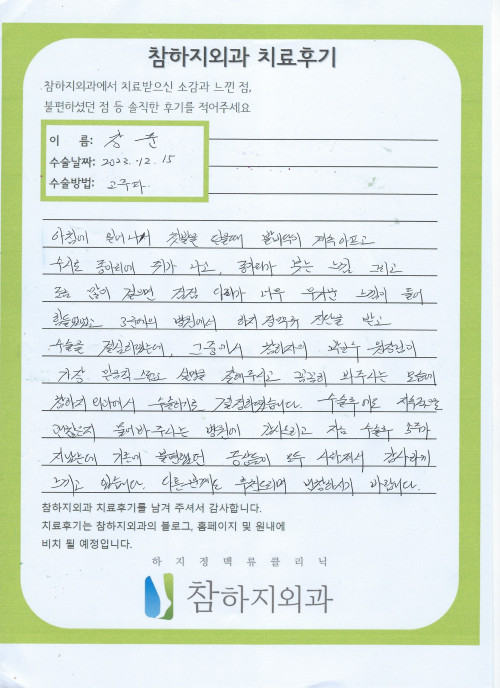 참하지외과 치료후기
참하지외과에서 치료받으신 소감과 느낀 점,
불편하셨던 점 등 솔직한 후기를 적어주세요
이 름: 장 준
수술날짜: 2023. 12. 15
수술방법: 고주파
아침에 일어나서 첫발을 디딜때 발바닥이 계속 아프고
수시로 종아리에 쥐가 나고, 종아리가 붓는 느낌 그리고
조금 많이 걸으면 점점 다리가 너무 무거운 느낌이 들어
힘들었었고 3군데의 병원에서 하지정맥류 진단을 받고
수술을 결심하였는데, 그중에서 참하지의 원장님이
가장 설명을 잘해주시고 꼼꼼히 봐주시는 모습에
참하지 외과에서 수술하기로 결정하였습니다. 수술후에도 지속적으로
괜찮은지 물어봐 주시는 병원에 감사드리고 지금 수술후 5주가
지났는데 기존에 불편했던 증상들이 모두 사라져서 감사하게
느끼고 있습니다. 다른분께도 추천드리며 번창하시기 바랍니다.
참하지외과 치료후기를 남겨 주셔서 감사합니다.
치료후기는 참하지외과의 블로그, 홈페이지 및 원내에
비치 될 예정입니다.
하지정맥류클리닉
참하지외과